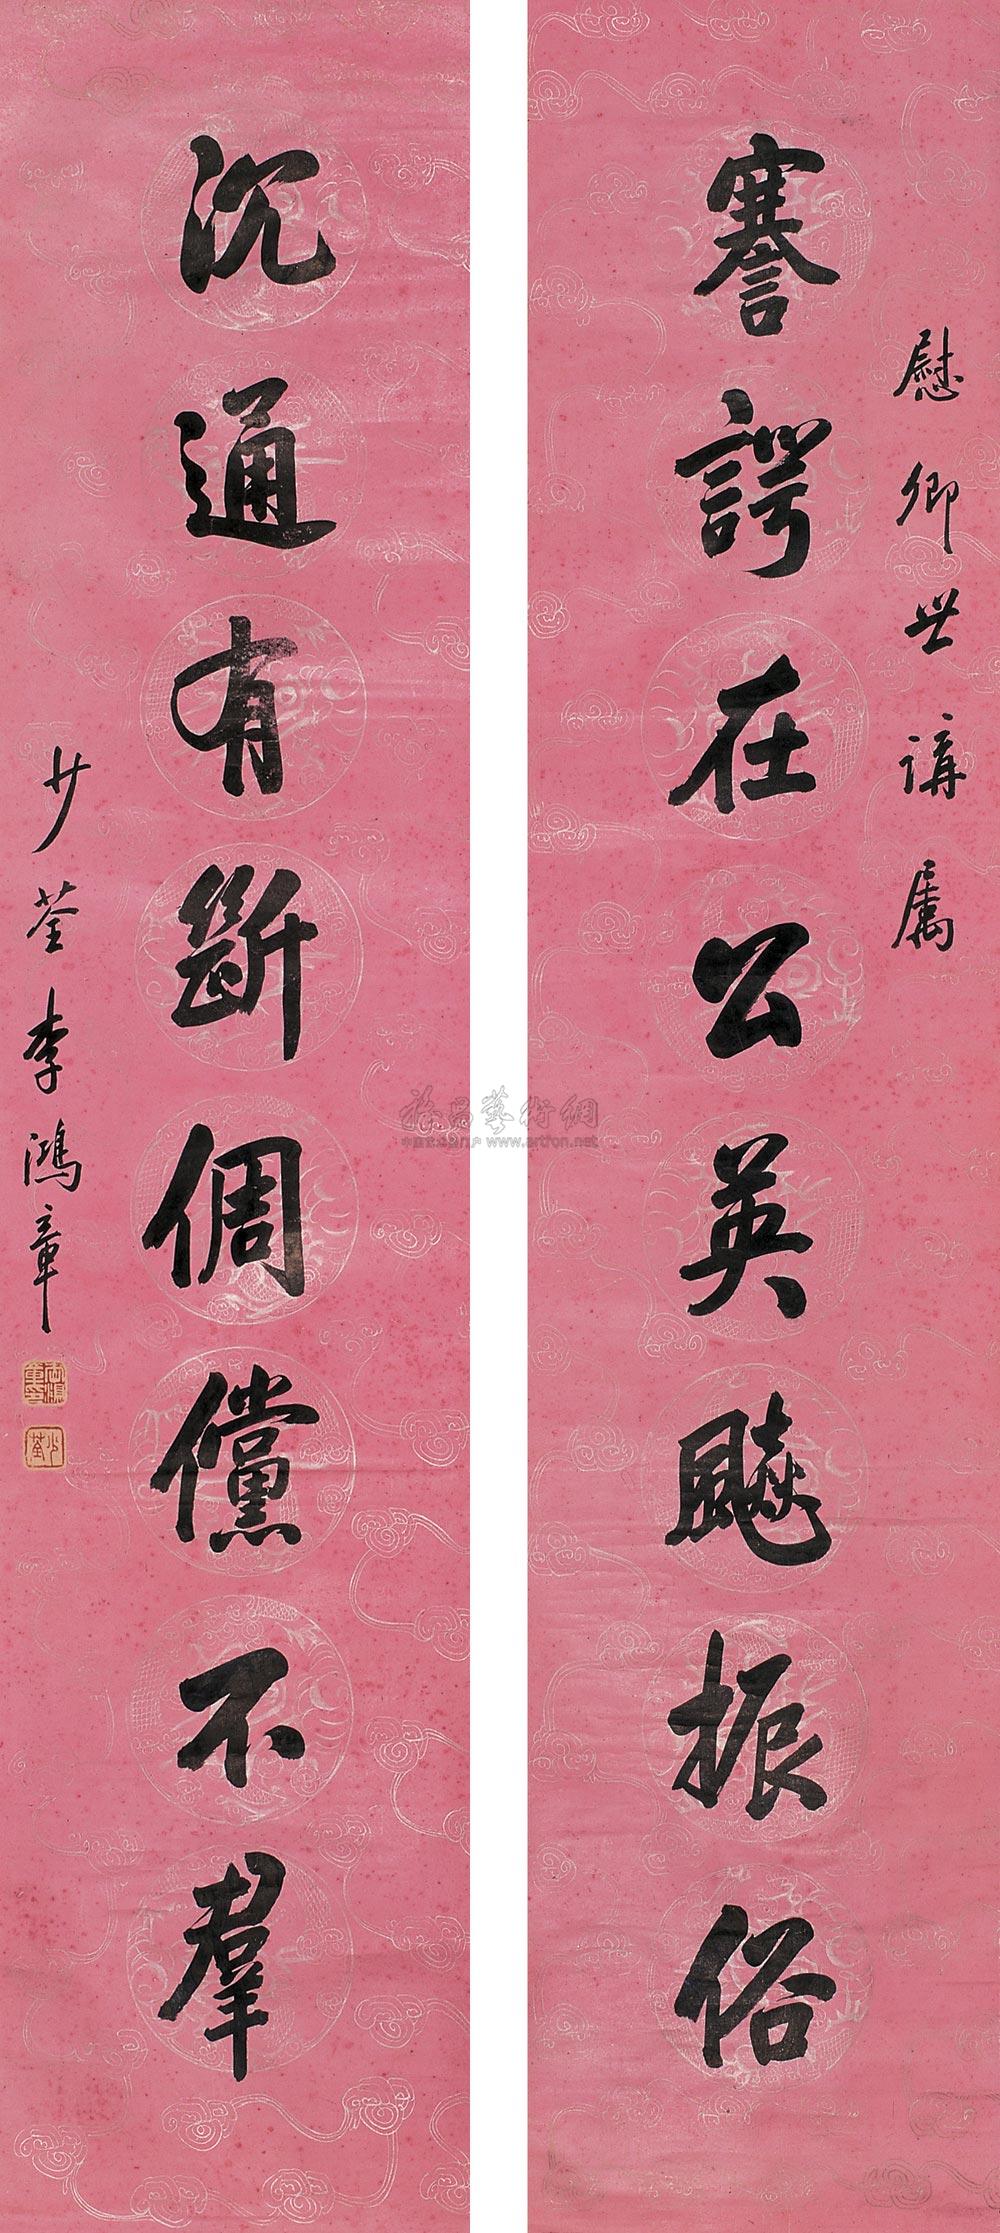 慰卿世講屬
謇諤在公英飈振俗
沉通有斷倜儻不羣
少荃李鴻章
少荃
雅昌藝術網
www.artron.net